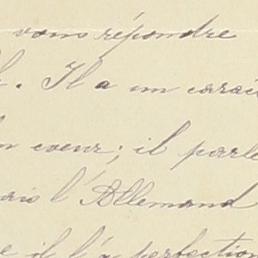 vous répondre
. Il a un carac
n coeur ; il parle
ais l'Allemand
e il l'a perfection